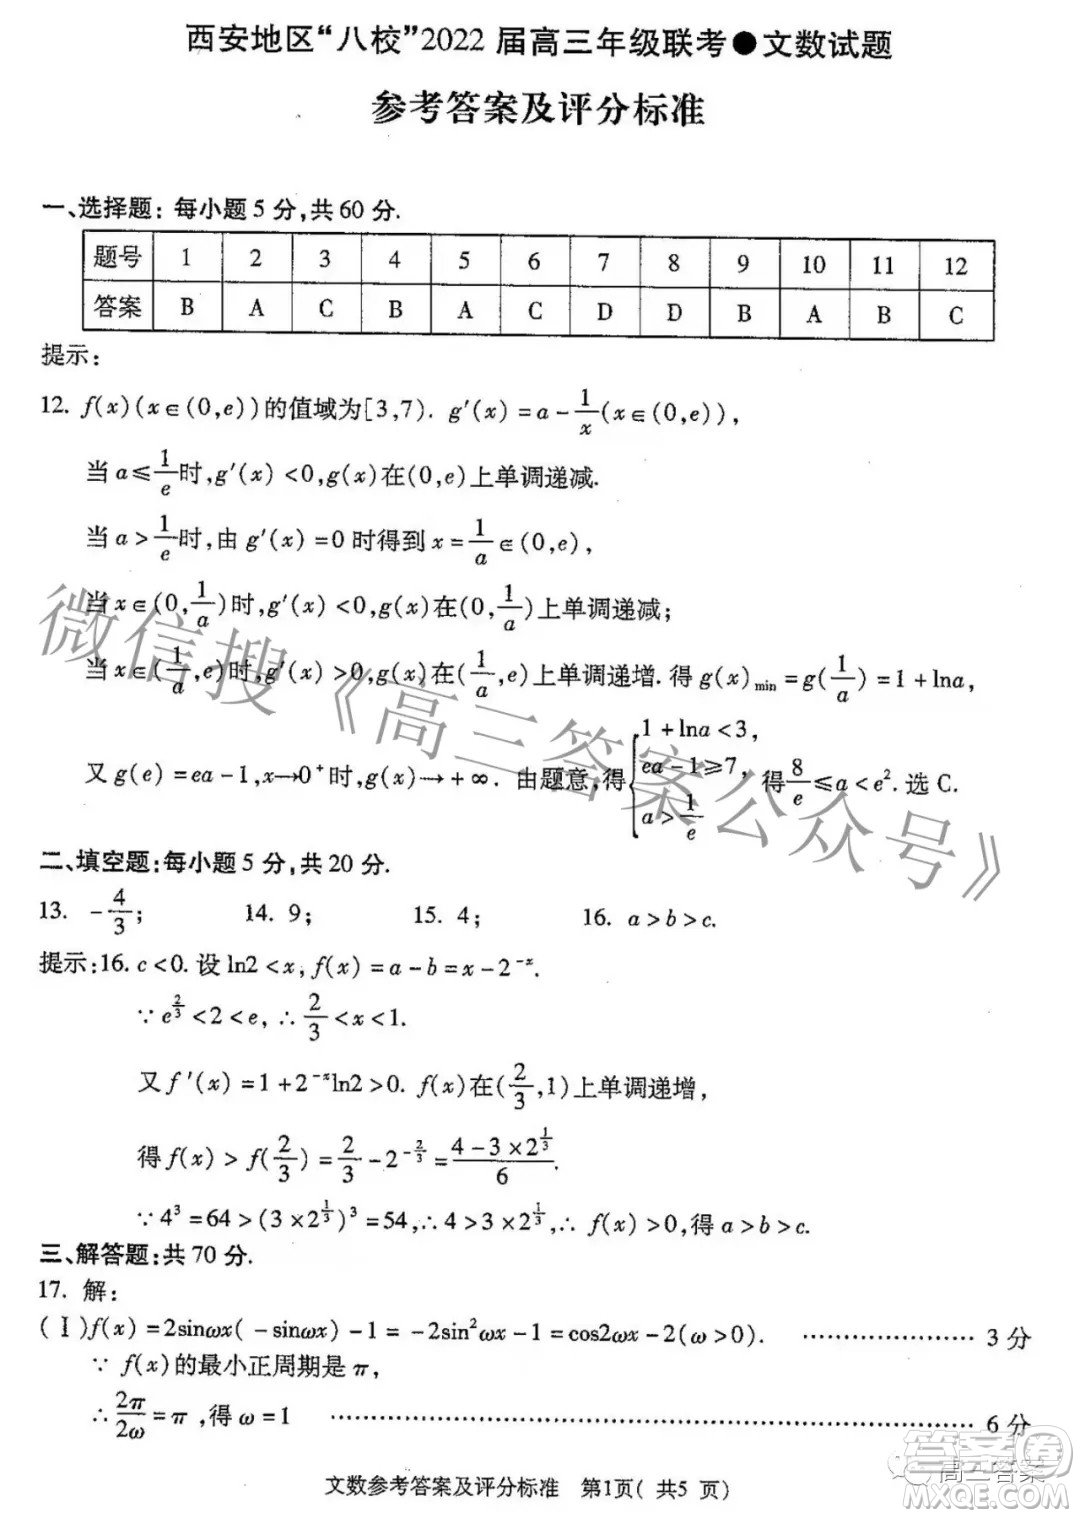 西安地区“八校”2022 届高三年级联考●文数试题
参考答案及评分标准
一、选择题: 每小题 5 分,共 60 分.
题号 1 2 3 4 5 6 7 8 9 10 11 12
答案 B A C B A C D D B A B C
提示:
12. f(x)(x∈(0,e))的值域为[3,7). g′(x)=a-1/x(x∈(0,e)),
当 a≤1/e时,g′(x)<0,g(x)在(0,e)上单调递减.
当 a>1/e时,由 g′(x)=0 时得到 x=1/a∈(0,e),
当 x∈(0,1/a)时,g′(x)<0,g(x)在(0,1/a)上单调递减;
当 x∈(1/a,e)时,g′(x)>0,g(x)在(1/a,e)上单调递增. 得 g(x)min=g(1/a)=1+lna,
又 g(e)=ea-1,x→0⁺时,g(x)→+∞. 由题意,得{1+lna<3, ea-1≥7, a>1/e 得8/e≤a<e². 选 C.
二、填空题:每小题 5 分,共 20 分.
13. -4/3; 14. 9; 15. 4; 16. a>b>c.
提示:16. c<0. 设 ln2<x, f(x)=a-b=x-2^(-x).
∵e^(2/3)<2<e, ∴2/3<x<1.
又 f′(x)=1+2^(-x)ln2>0. f(x)在(2/3,1)上单调递增,
得 f(x)>f(2/3)=2/3-2^(-2/3)=(4-3×2^(1/3))/6.
∵4³=64>(3×2^(1/3))³=54,∴4>3×2^(1/3),∴ f(x)>0,得 a>b>c.
三、解答题:共 70 分.
17. 解:
(Ⅰ)f(x)=2sinωx(-sinωx)-1=-2sin²ωx-1=cos2ωx-2(ω>0). ………………… 3 分
∵ f(x)的最小正周期是 π,
∴2π/2ω=π,得 ω=1 ………………………………………… 6 分
文数参考答案及评分标准 第1页( 共5 页)
微信搜《高三答案公众号》
高三答案
答案圈
MXQE.COM